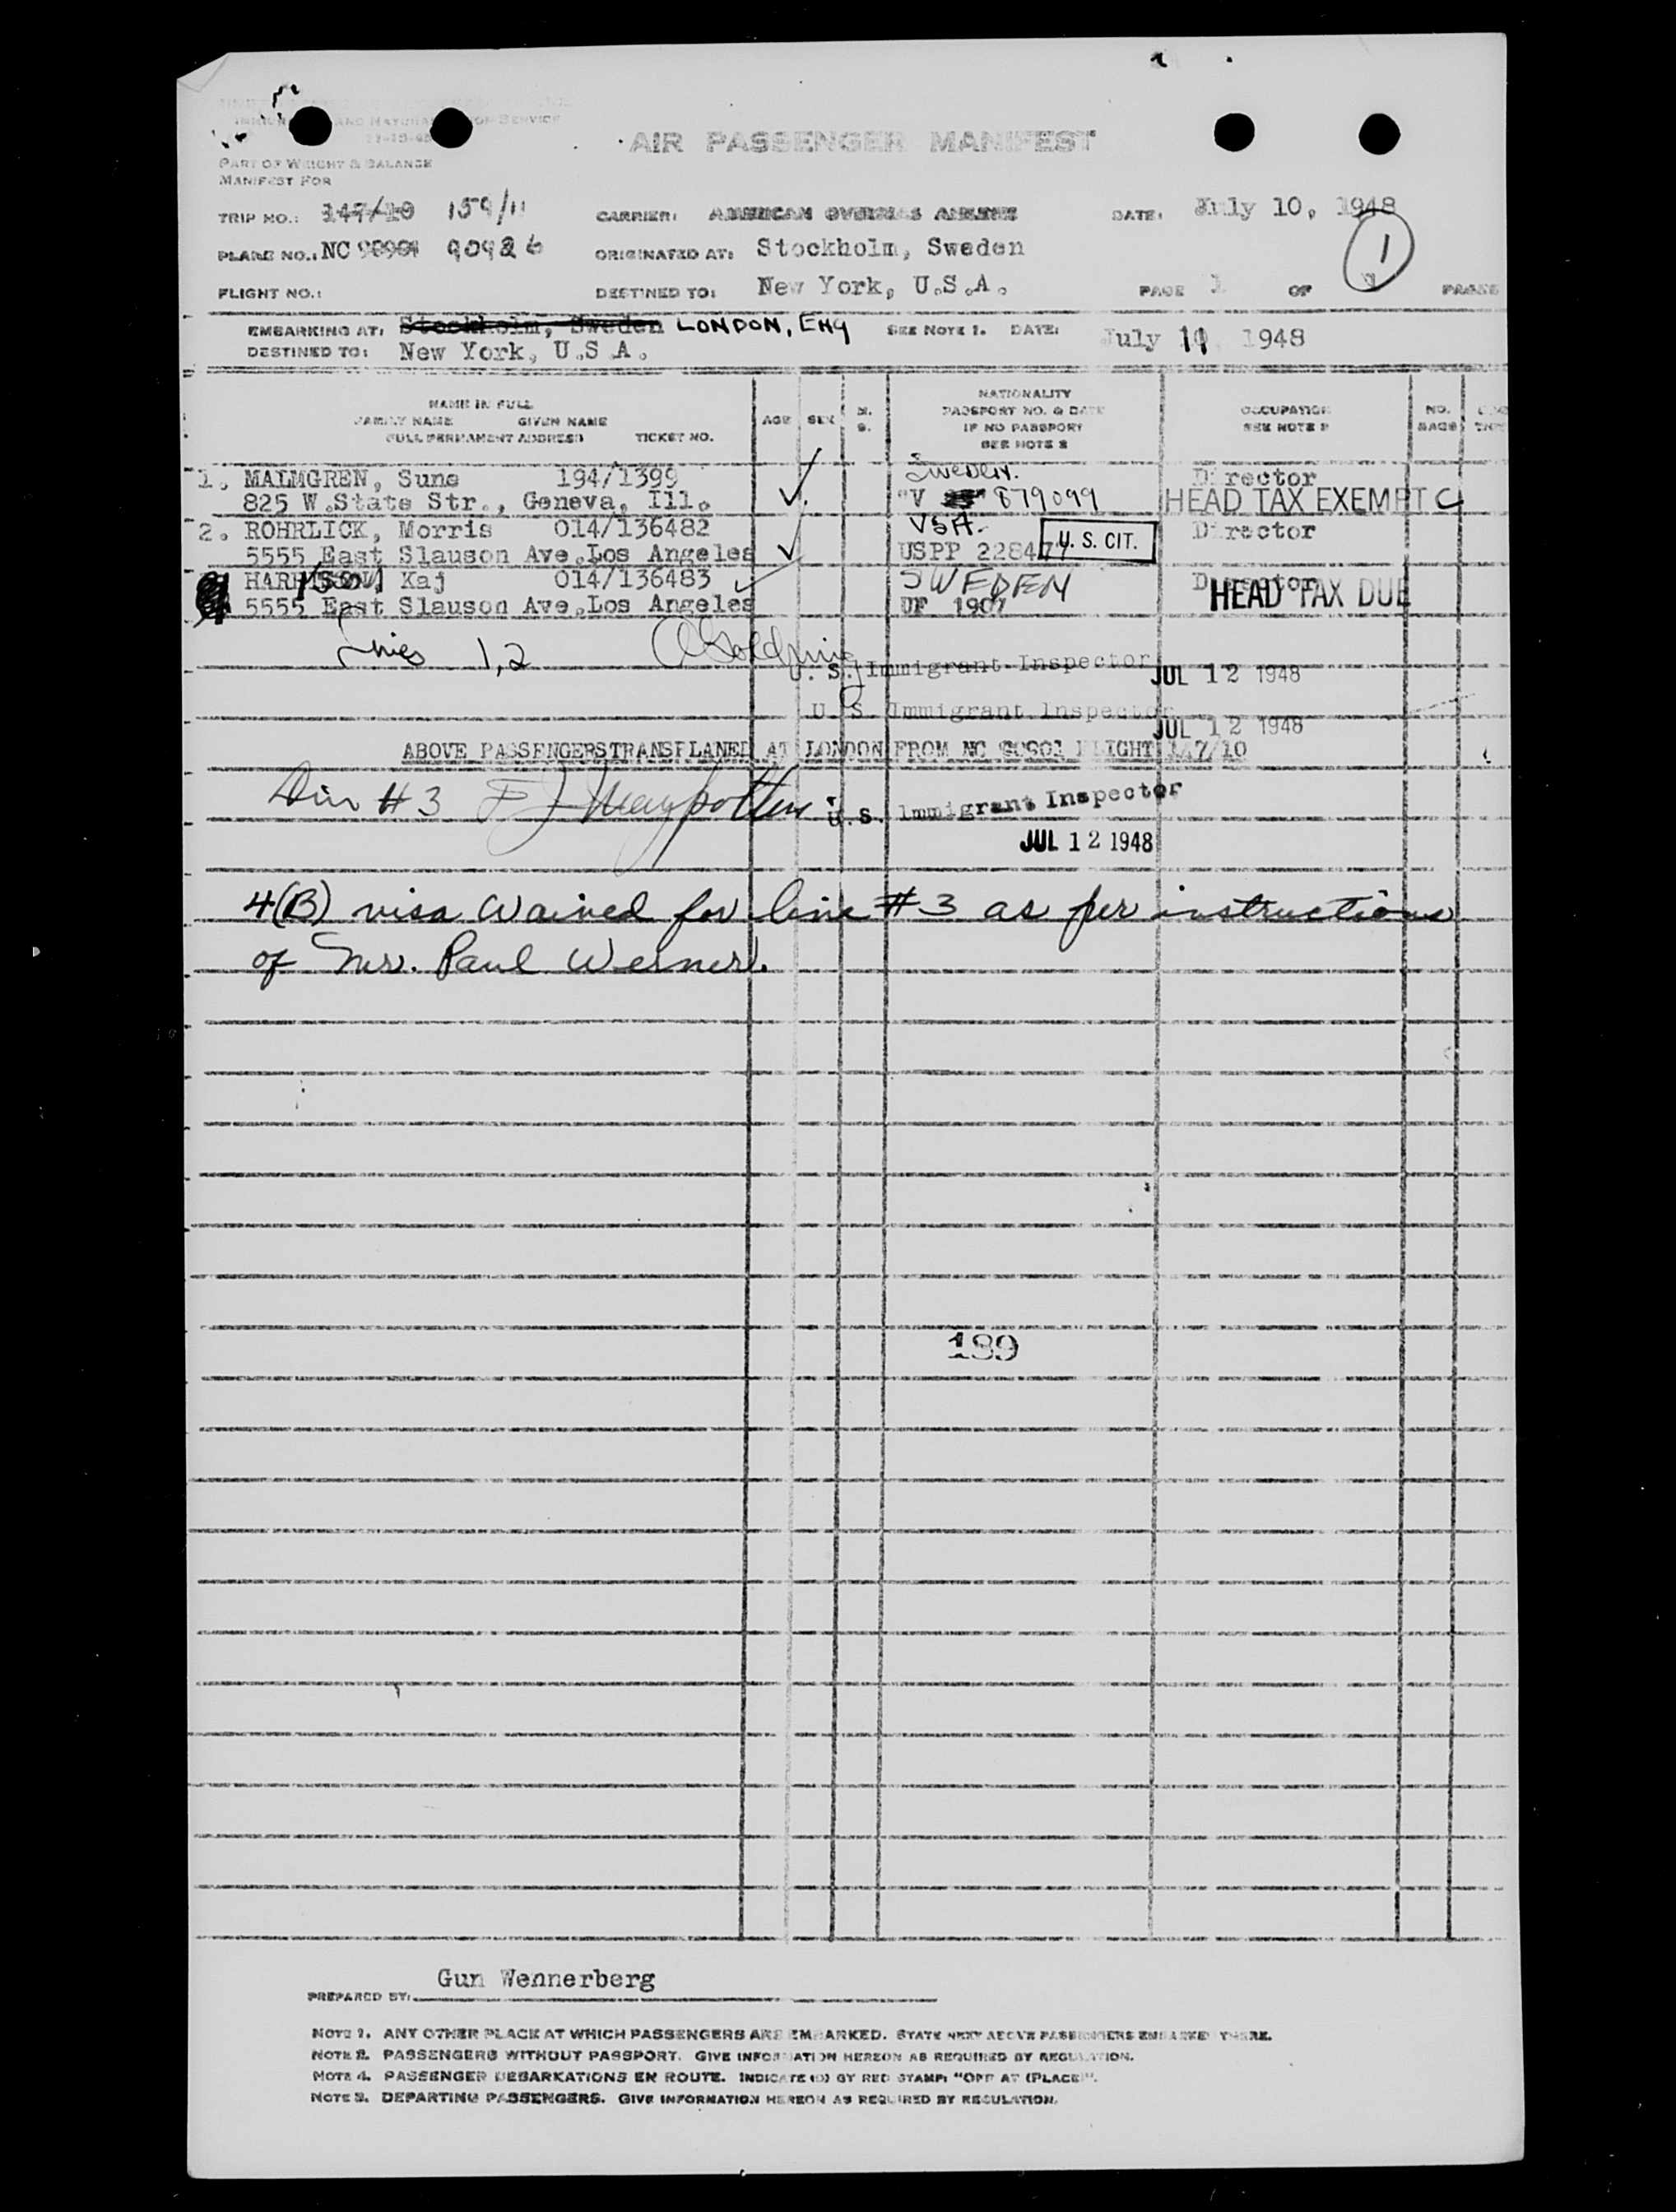 IMMIGRATION AND NATURALIZATION SERVICE
AIR PASSENGER MANIFEST
PART OF WEIGHT & BALANCE
MANIFEST FOR
TRIP NO.: 147/10 159/11 CARRIER: AMERICAN OVERSEAS AIRLINES DATE: July 10, 1948
PLANE NO.: NC 90901 90926 ORIGINATED AT: Stockholm, Sweden 1
FLIGHT NO.: DESTINED TO: New York, U.S.A. PAGE 1 OF 1 PAGES
EMBARKING AT: Stockholm, Sweden LONDON, ENG SEE NOTE 1. DATE: July 11 1948
DESTINED TO: New York, U.S.A.
NAME IN FULL
FAMILY NAME GIVEN NAME
FULL PERMANENT ADDRESS TICKET NO.
AGE SEX M. S.
NATIONALITY
PASSPORT NO. & DATE
IF NO PASSPORT
SEE NOTE 2
OCCUPATION
SEE NOTE 2
NO. BAGS
1. MALMGREN, Sune 194/1399 Sweden. Director
825 W.State Str., Geneva, Ill. V 879099 HEAD TAX EXEMPT C
2. ROHRLICK, Morris 014/136482 USA. Director
5555 East Slauson Ave.Los Angeles USPP 228477 U. S. CIT.
Kaj 014/136483 SWEDEN Director
5555 East Slauson Ave.Los Angeles UF 1907 HEAD TAX DUE
Lines 1,2 U. S. Immigrant Inspector JUL 12 1948
U. S. Immigrant Inspector JUL 12 1948
ABOVE PASSENGERS TRANSPLANED AT LONDON FROM NC 90901 FLIGHT 147/10
#3 U. S. Immigrant Inspector
JUL 12 1948
4(B) visa waived for line #3 as per instructions
of Mr. Paul Werner.
189
Gun Wennerberg
PREPARED BY:
NOTE 1. ANY OTHER PLACE AT WHICH PASSENGERS ARE EMBARKED. STATE NEXT ABOVE PASSENGERS EMBARKED THERE.
NOTE 2. PASSENGERS WITHOUT PASSPORT. GIVE INFORMATION HEREON AS REQUIRED BY REGULATION.
NOTE 4. PASSENGER DEBARKATIONS EN ROUTE. INDICATE (D) BY RED STAMP: "OFF AT (PLACE)".
NOTE 3. DEPARTING PASSENGERS. GIVE INFORMATION HEREON AS REQUIRED BY REGULATION.